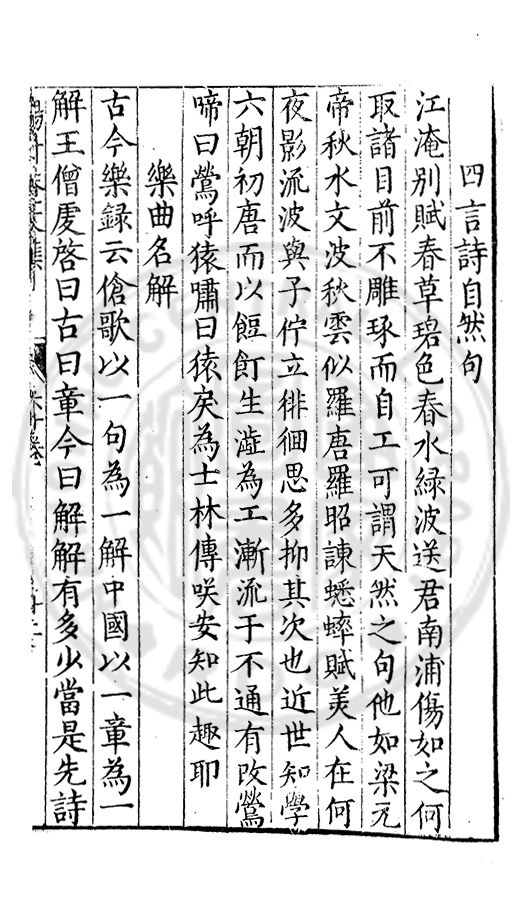 四言詩自然句
江淹别賦春草碧色春水緑波送君南浦傷如之何
取諸目前不雕琢而自工可謂天然之句他如梁元
帝秋水文波秋雲似羅唐羅昭諫蟋蟀賦美人在何
夜影流波與子佇立徘徊思多抑其次也近世知學
六朝初唐而以餖飣生澁為工漸流于不通有改鶯
啼曰鶯呼猿嘯曰猿戾為士林傳咲安知此趣耶
樂曲名解
古今樂録云傖歌以一句為一解中國以一章為一
解王僧虔啓曰古曰章今曰解解有多少當是先詩